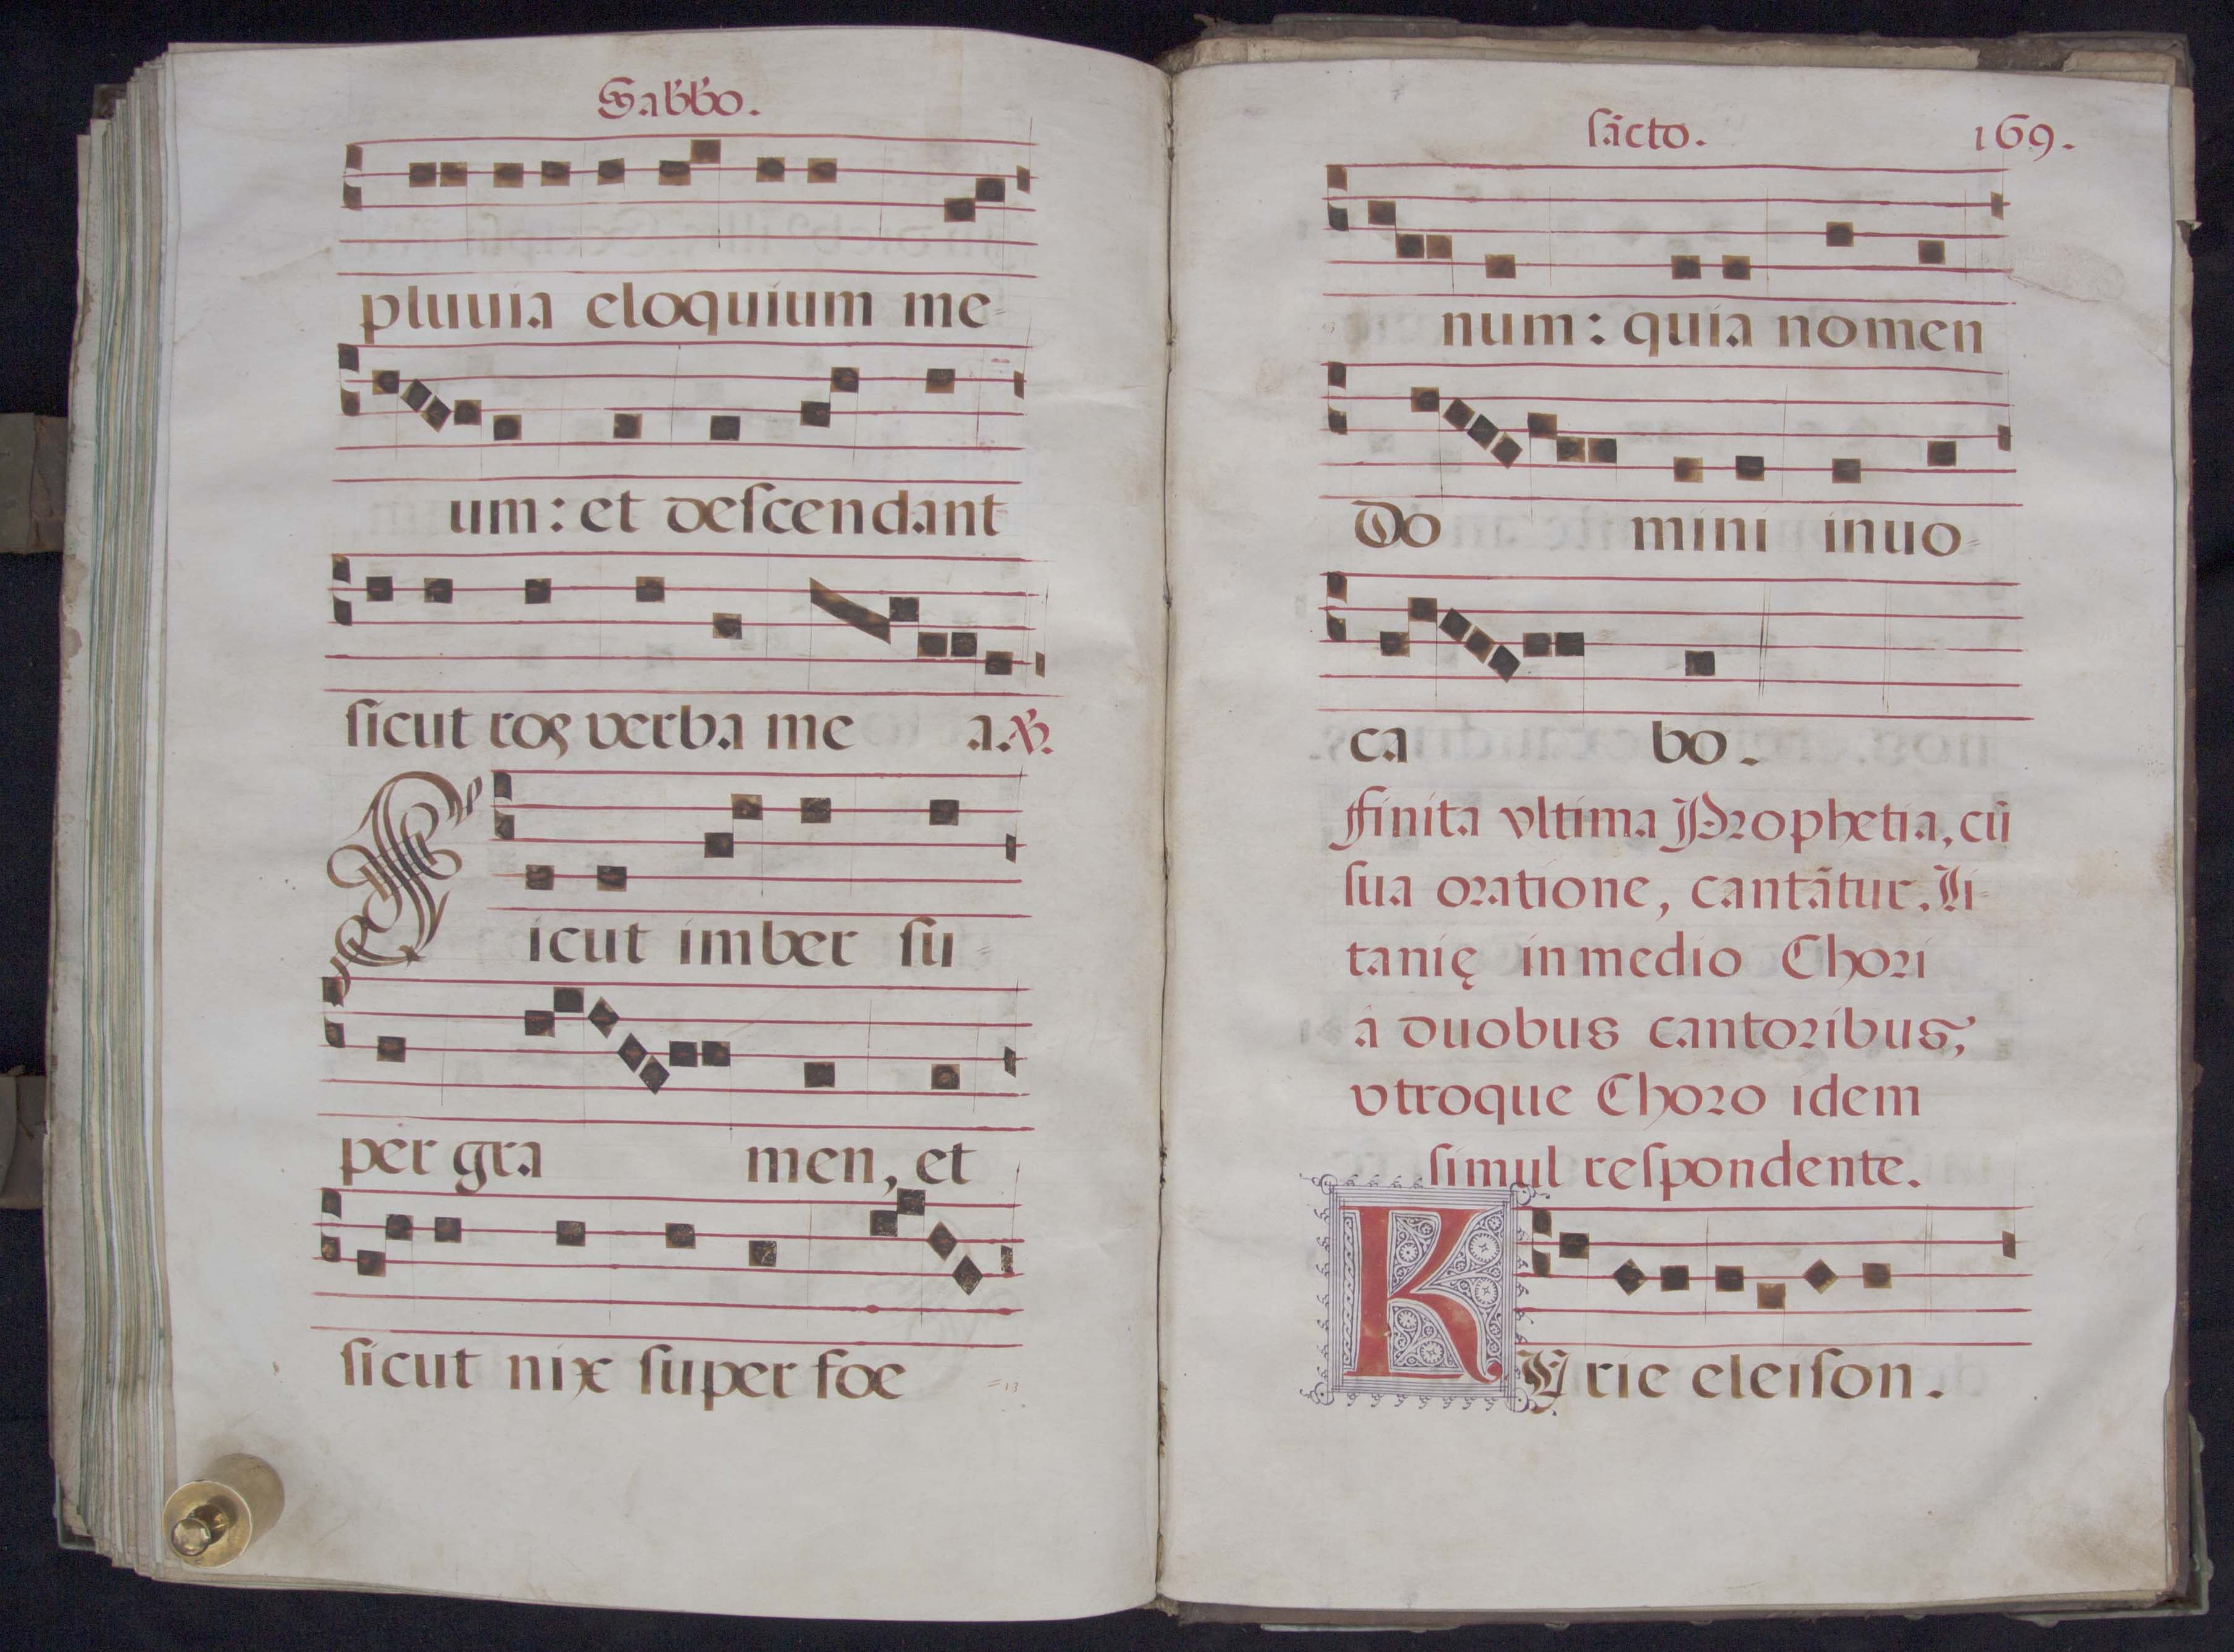 Sabbo.
pluuia eloquium me=
um: et deſcendant
ſicut ros verba me a. ℣.
Sicut imber ſu=
per gra men, et
ſicut nix ſuper foe
=13
ſācto. 169.
num: quia nomen
Do mini inuo=
ca bo.
finita vltima Prophetia, cū
ſua oratione, cantātur. Li-
tanię in medio Chori
â duobus cantoribus,
vtroque Choro idem
ſimul reſpondente.
KYrie eleiſon.